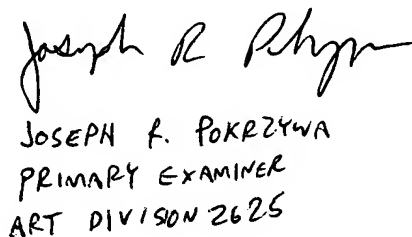 Joseph R
JOSEPH R. POKRZYWA
PRIMARY EXAMINER
ART DIVISON 2625